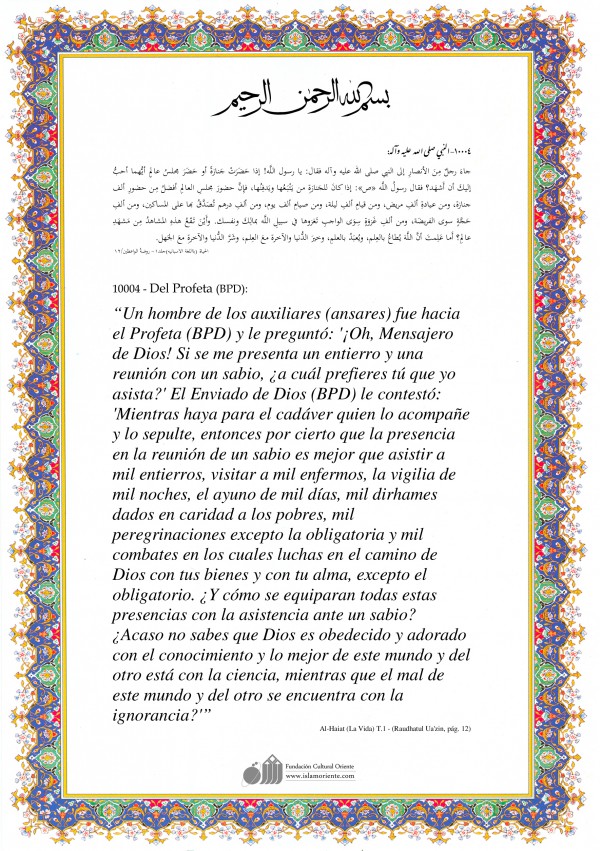 بسم الله الرحمن الرحيم
١٠٠٠٤- النبي صلى الله عليه وآله:
جاءَ رجلٌ مِنَ الأنصارِ إلى النبي صلى الله عليه وآله فقالَ: يا رسول اللَّه! إذا حَضَرَتْ جَنازةٌ أو حَضَرَ مجلسُ عالمٍ أيُّهما أحبُّ
إليكَ أن أشهَدَ؟ فقالَ رسولُ اللَّهِ «ص»: إذا كانَ للجَنازة من يَتْبَعُها ويَدفِنُها، فإنَّ حضورَ مجلسِ العالمِ أفضلُ مِن حضورِ ألفِ
جنازة، ومن عيادةِ ألفِ مريض، ومن قيامِ ألفِ ليلة، ومن صيامِ ألفِ يوم، ومن ألفِ درهمٍ تُصَدَّقُ بها على المساكين، ومن ألفِ
حَجَّةٍ سِوى الفريضَة، ومن ألفِ غَزوَةٍ سِوَى الواجبِ تَغزوها في سبيلِ اللَّه بمالِكَ ونفسك. وأيْنَ تَقعُ هذهِ المشاهدُ مِن مَشهَدِ
عالمٍ؟ أما عَلِمتَ أنَّ اللَّهَ يُطاعُ بالعِلمِ، ويُعبَدُ بالعلمِ، وخيرَ الدُّنيا والآخرةِ معَ العِلمِ، وشَرَّ الدُّنيا والآخرةِ معَ الجَهلِ.
10004 - Del Profeta (BPD):
“Un hombre de los auxiliares (ansares) fue hacia
el Profeta (BPD) y le preguntó: '¡Oh, Mensajero
de Dios! Si se me presenta un entierro y una
reunión con un sabio, ¿a cuál prefieres tú que yo
asista?' El Enviado de Dios (BPD) le contestó:
'Mientras haya para el cadáver quien lo acompañe
y lo sepulte, entonces por cierto que la presencia
en la reunión de un sabio es mejor que asistir a
mil entierros, visitar a mil enfermos, la vigilia de
mil noches, el ayuno de mil días, mil dirhames
dados en caridad a los pobres, mil
peregrinaciones excepto la obligatoria y mil
combates en los cuales luchas en el camino de
Dios con tus bienes y con tu alma, excepto el
obligatorio. ¿Y cómo se equiparan todas estas
presencias con la asistencia ante un sabio?
¿Acaso no sabes que Dios es obedecido y adorado
con el conocimiento y lo mejor de este mundo y del
otro está con la ciencia, mientras que el mal de
este mundo y del otro se encuentra con la
ignorancia?'”
Al-Haiat (La Vida) T.1 - (Raudhatul Ua'zin, pág. 12)
Fundación Cultural Oriente
www.islamoriente.com